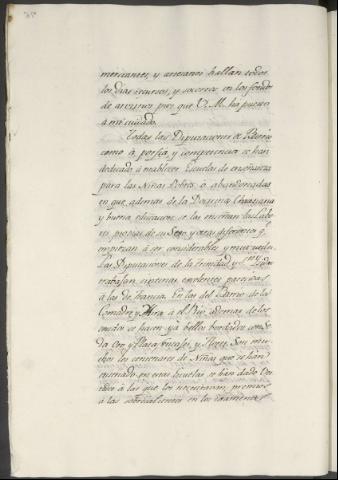 mercantes, y artesanos hallan todos
los dias recursos, y socorros en los fondos
de arvitrios pios que V. M. ha puesto
a mi cuidado.
Todas las Diputaciones de Barrio
como á porfia, y competencia se han
dedicado á establecer Escuelas de enseñanza
para las Niñas Pobres, o abandonadas
en que, ademas de la Doctrina Christiana
y buena educacion se las enseñan las Labo
res propias de su Sexo y otras diferentes qe
empiezan á ser considerables y mui utiles.
Las Diputaciones de la Trinidad y
trabajan cintas excelentes parecidas
a las de francia. En las del Barrio de la
Comadre, y Mira el Rio, ademas de los
se hacen ya bellos bordados con Se
da Oro y Plata, y flores. Son mu
chos los centenares de Niñas que se han
enseñado, y en estas Escuelas se han dado Do
tes á las que los necesitaran, premios
á las sobresalientes en los examenes